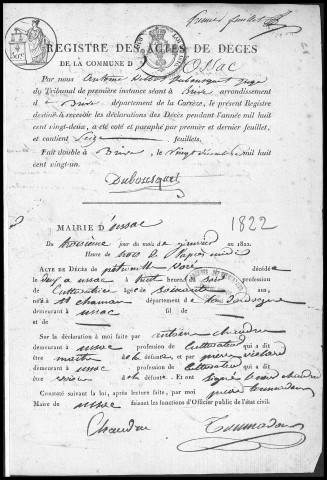 Premier feuillet
REGISTRE DES ACTES DE DÉCÈS
DE LA COMMUNE D'Ossac
Par nous Antoine Joseph Dubousquet juge
du Tribunal de première instance séant à Brive arrondissement
de Brive département de la Corrèze, le présent Registre
destiné à recevoir les déclarations des Décès pendant l'année mil huit
cent vingt-deux, a été coté et paraphé par premier et dernier feuillet,
et contient Seize feuillets.
Fait double à Brive, le vingt décembre mil huit
cent vingt-un.
Dubousquet
MAIRIE d'ussac 1822
Du troisieme jour du mois de janvier an 1822.
Heure de trois de l'après midi
ACTE DE DÉCÈS de petronille décédée
le deux a ussac à huit heures du soir profession
de Cultivatrice agée de soixante ans
né à St chaman département de la dordogne
demeurant à ussac fil de
et de
Sur la déclaration à moi faite par antoine chaudru
demeurant à ussac profession de Cultivateur qui a dit
être maître de la défunte, et par pierre
demeurant à ussac profession de Cultivateur qui a dit
être voisin de la défunte. Et ont signé
Constaté suivant la loi, après lecture faite, par moi pierre tournadour
Maire de ussac faisant les fonctions d'Officier public de l'état civil.
Chaudru Tournadour